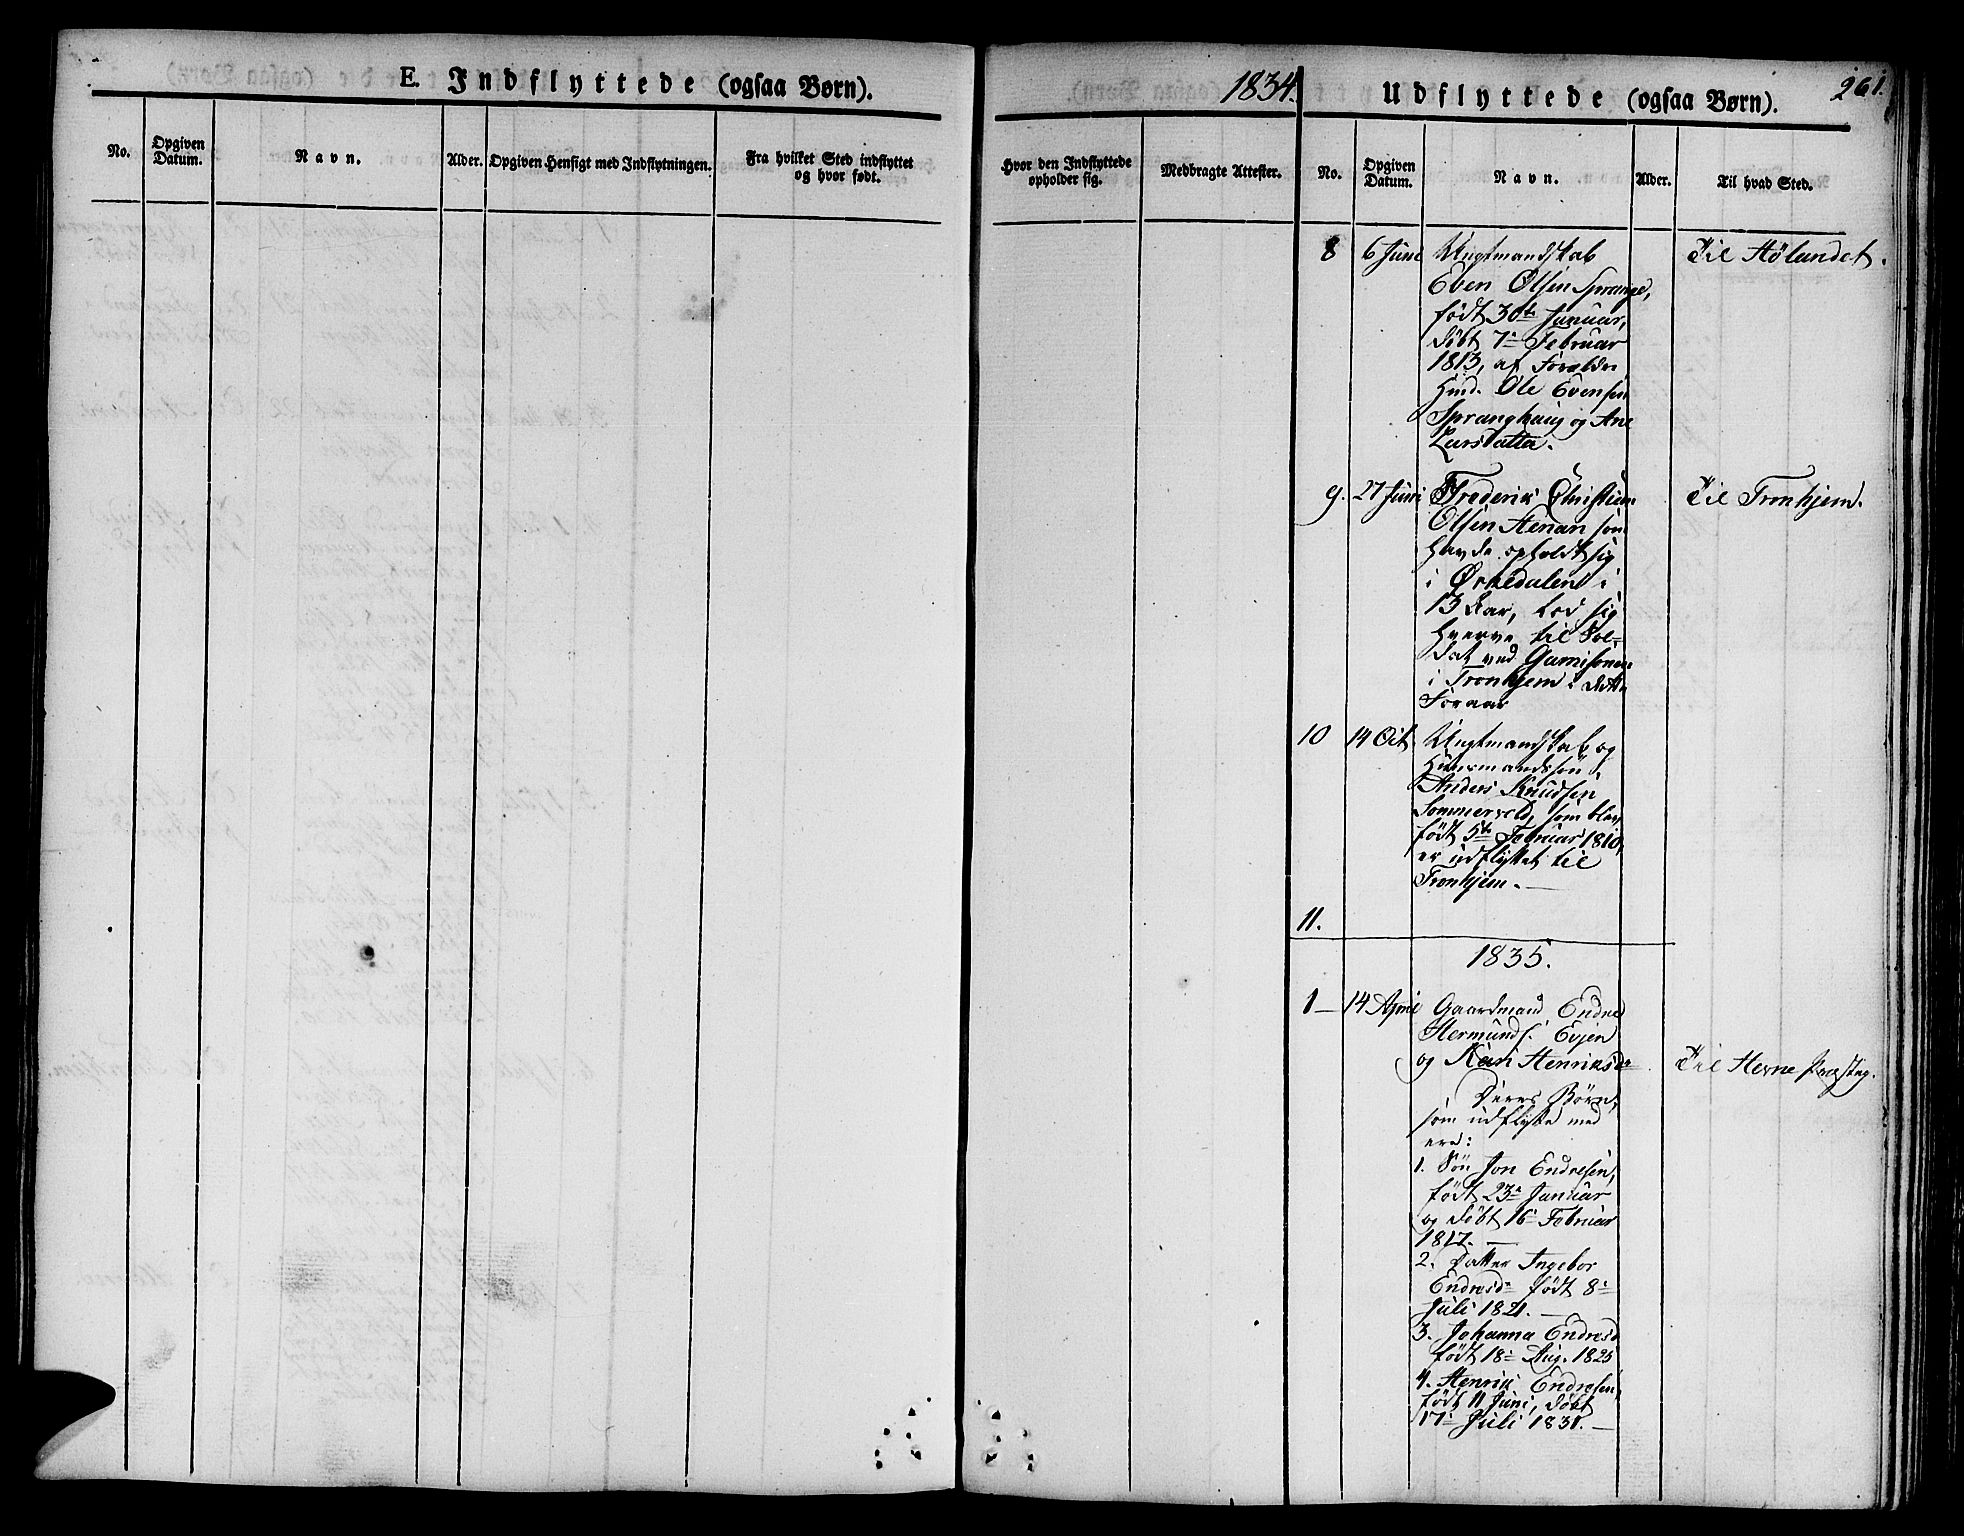 E. Indflyttede (ogsaa Børn).
No.
Opgiven
Datum.
Navn.
Alder.
Opgiven Hensigt med Indflytningen.
Fra hvilket Sted indflyttet
og hvor født.
1834.
Udflyttede (ogsaa Børn).
261.
Hvor den Indflyttede
opholder sig.
Medbragte Attester.
No.
Opgiven
Datum.
Navn.
Alder.
Til hvad Sted.
8 6 Juni Ungtmandskab Til Hølandet.
Even Olsen Sprange,
født 30te Januar,
døbt 7de Februar
1813, af Forældre
Huusd. Ole Evensen
Spranghaug og Ane
Larsdatter.
9. 27 Juni Frederik Christian Til Tronhjem.
Olsen Stenan som
havde opholdt sig
i Ørkedalen i
13 Aar, lod sig
hverve til Sol-
dat ved Garnisonen
i Tronhjem i dette
Foraar
10 14 Oct. Ungtmandskab og
Huusmandssøn
Anders Knudsen
Sommervold, som blev
født 5te Februar 1810,
er udflyttet til
Tronhjem. —
11.
1835.
1 — 14 April Gaardmand Endre
Hermunds. Evjen
og Kari Henriksdr Til Hevne Præsteg.
Deres Børn,
som udflytte med
ere:
1. Søn Jon Endresen,
født 23de Januar
og døbt 16de Februar
1817. —
2. Datter Ingebor
Endresdr født 8de
Juli 1821. —
3. Johanna Endresd
født 18de Aug. 1825
4. Henrik Endresen,
født 11 Juni, døbt
17de Juli 1831. —